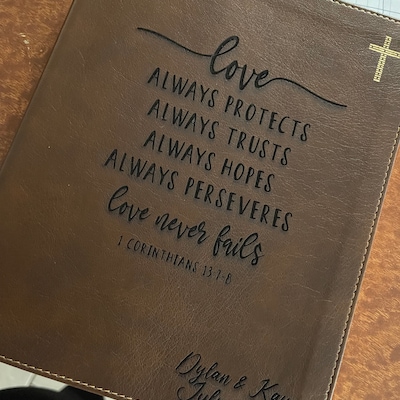 love
ALWAYS PROTECTS
ALWAYS TRUSTS
ALWAYS HOPES
ALWAYS PERSEVERES
love never fails
1 CORINTHIANS 13 7-8
Dylan &